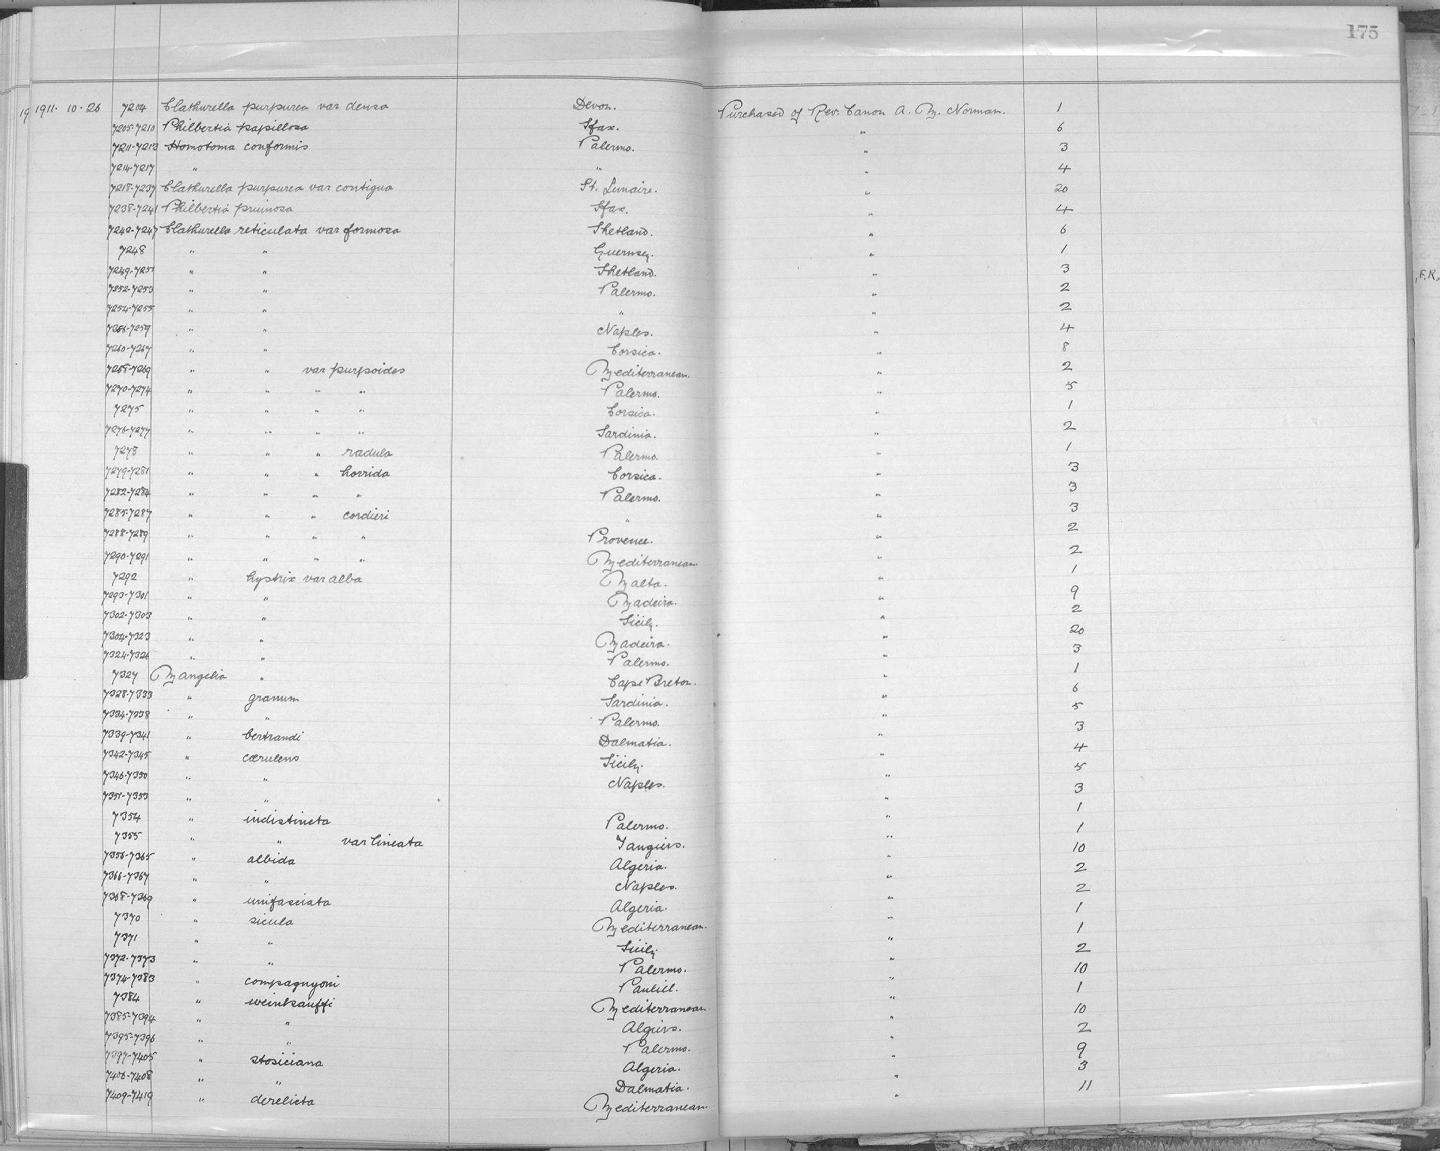 175
1911. 10. 26 7204 Clathurella purpurea var densa Devon. Purchased of Rev. Canon A. M. Norman. 1
7205-7210 Philbertia papillosa Sfax. " 6
7211-7213 Homotoma conformis Palermo. " 3
7214-7217 " " " 4
7218-7237 Clathurella purpurea var contigua St. Lunaire. " 20
7238-7241 Philbertia pruinosa Sfax. " 4
7242-7247 Clathurella reticulata var formosa Shetland. " 6
7248 " " Guernsey. " 1
7249-7251 " " Shetland. " 3
7252-7253 " " Palermo. " 2
7254-7255 " " " " 2
7256-7259 " " Naples. " 4
7260-7267 " " Corsica. " 8
7268-7269 " " var purpoides Mediterranean. " 2
7270-7274 " " " " Palermo. " 5
7275 " " " " Corsica. " 1
7276-7277 " " " " Sardinia. " 2
7278 " " " radula Palermo " 1
7279-7281 " " " horrida Corsica. " 3
7282-7284 " " " " Palermo. " 3
7285-7287 " " " cordieri " " 3
7288-7289 " " " " Provence. " 2
7290-7291 " " " " Mediterranean " 2
7292 " hystrix var alba Malta. " 1
7293-7301 " " Madeira. " 9
7302-7303 " " Sicily. " 2
7304-7323 " " Madeira. " 20
7324-7326 " " Palermo. " 3
7327 Mangilia " Cape Breton. " 1
7328-7333 " granum Sardinia. " 6
7334-7338 " " Palermo. " 5
7339-7341 " bertrandi Dalmatia. " 3
7342-7345 " cœrulens Sicily. " 4
7346-7350 " " Naples. " 5
7351-7353 " " " 3
7354 " indistincta Palermo. " 1
7355 " " var lineata Tangiers. " 1
7356-7365 " albida Algeria. " 10
7366-7367 " " Naples. " 2
7368-7369 " unifasciata Algeria. " 2
7370 " sicula Mediterranean. " 1
7371 " " Sicily. " 1
7372-7373 " " Palermo. " 2
7374-7383 " compagnyoni " 10
7384 " weinkauffi Mediterranean. " 1
7385-7394 " " Algiers. " 10
7395-7396 " " Palermo. " 2
7397-7405 " stosiciana Algeria. " 9
7406-7408 " " Dalmatia. " 3
7409-7419 " derelicta Mediterranean. " 11